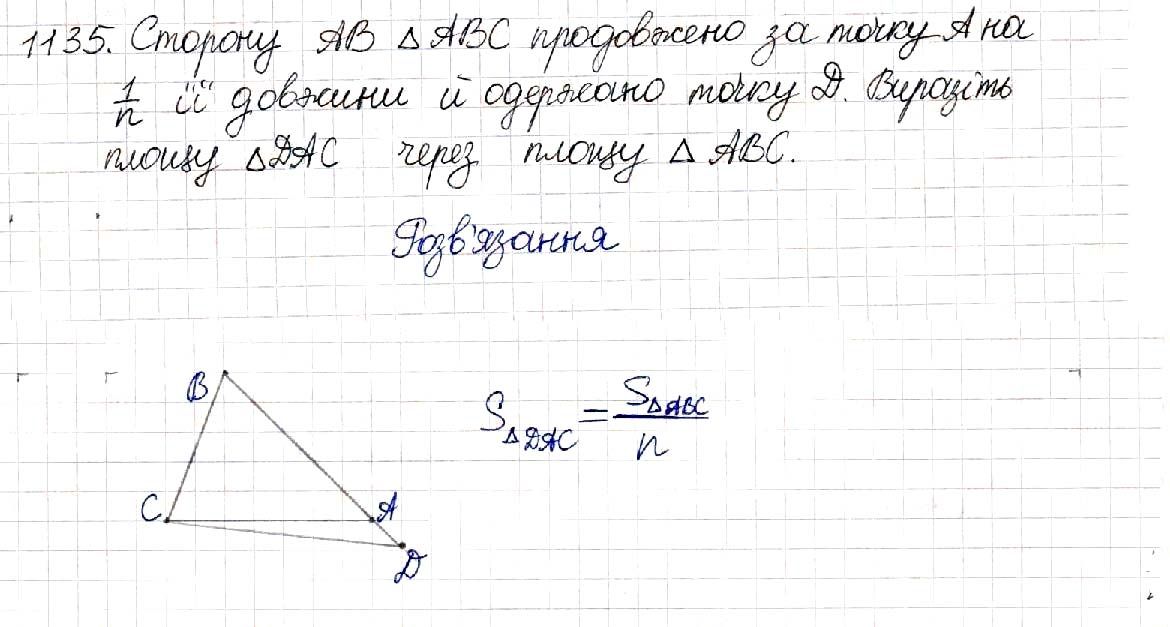 1135. Сторону AB △ABC продовжено за точку A на
1/n її довжини й одержано точку D. Виразіть
площу △DAC через площу △ABC.
Розв'язання
B
S△DAC = S△ABC / n
C
A
D